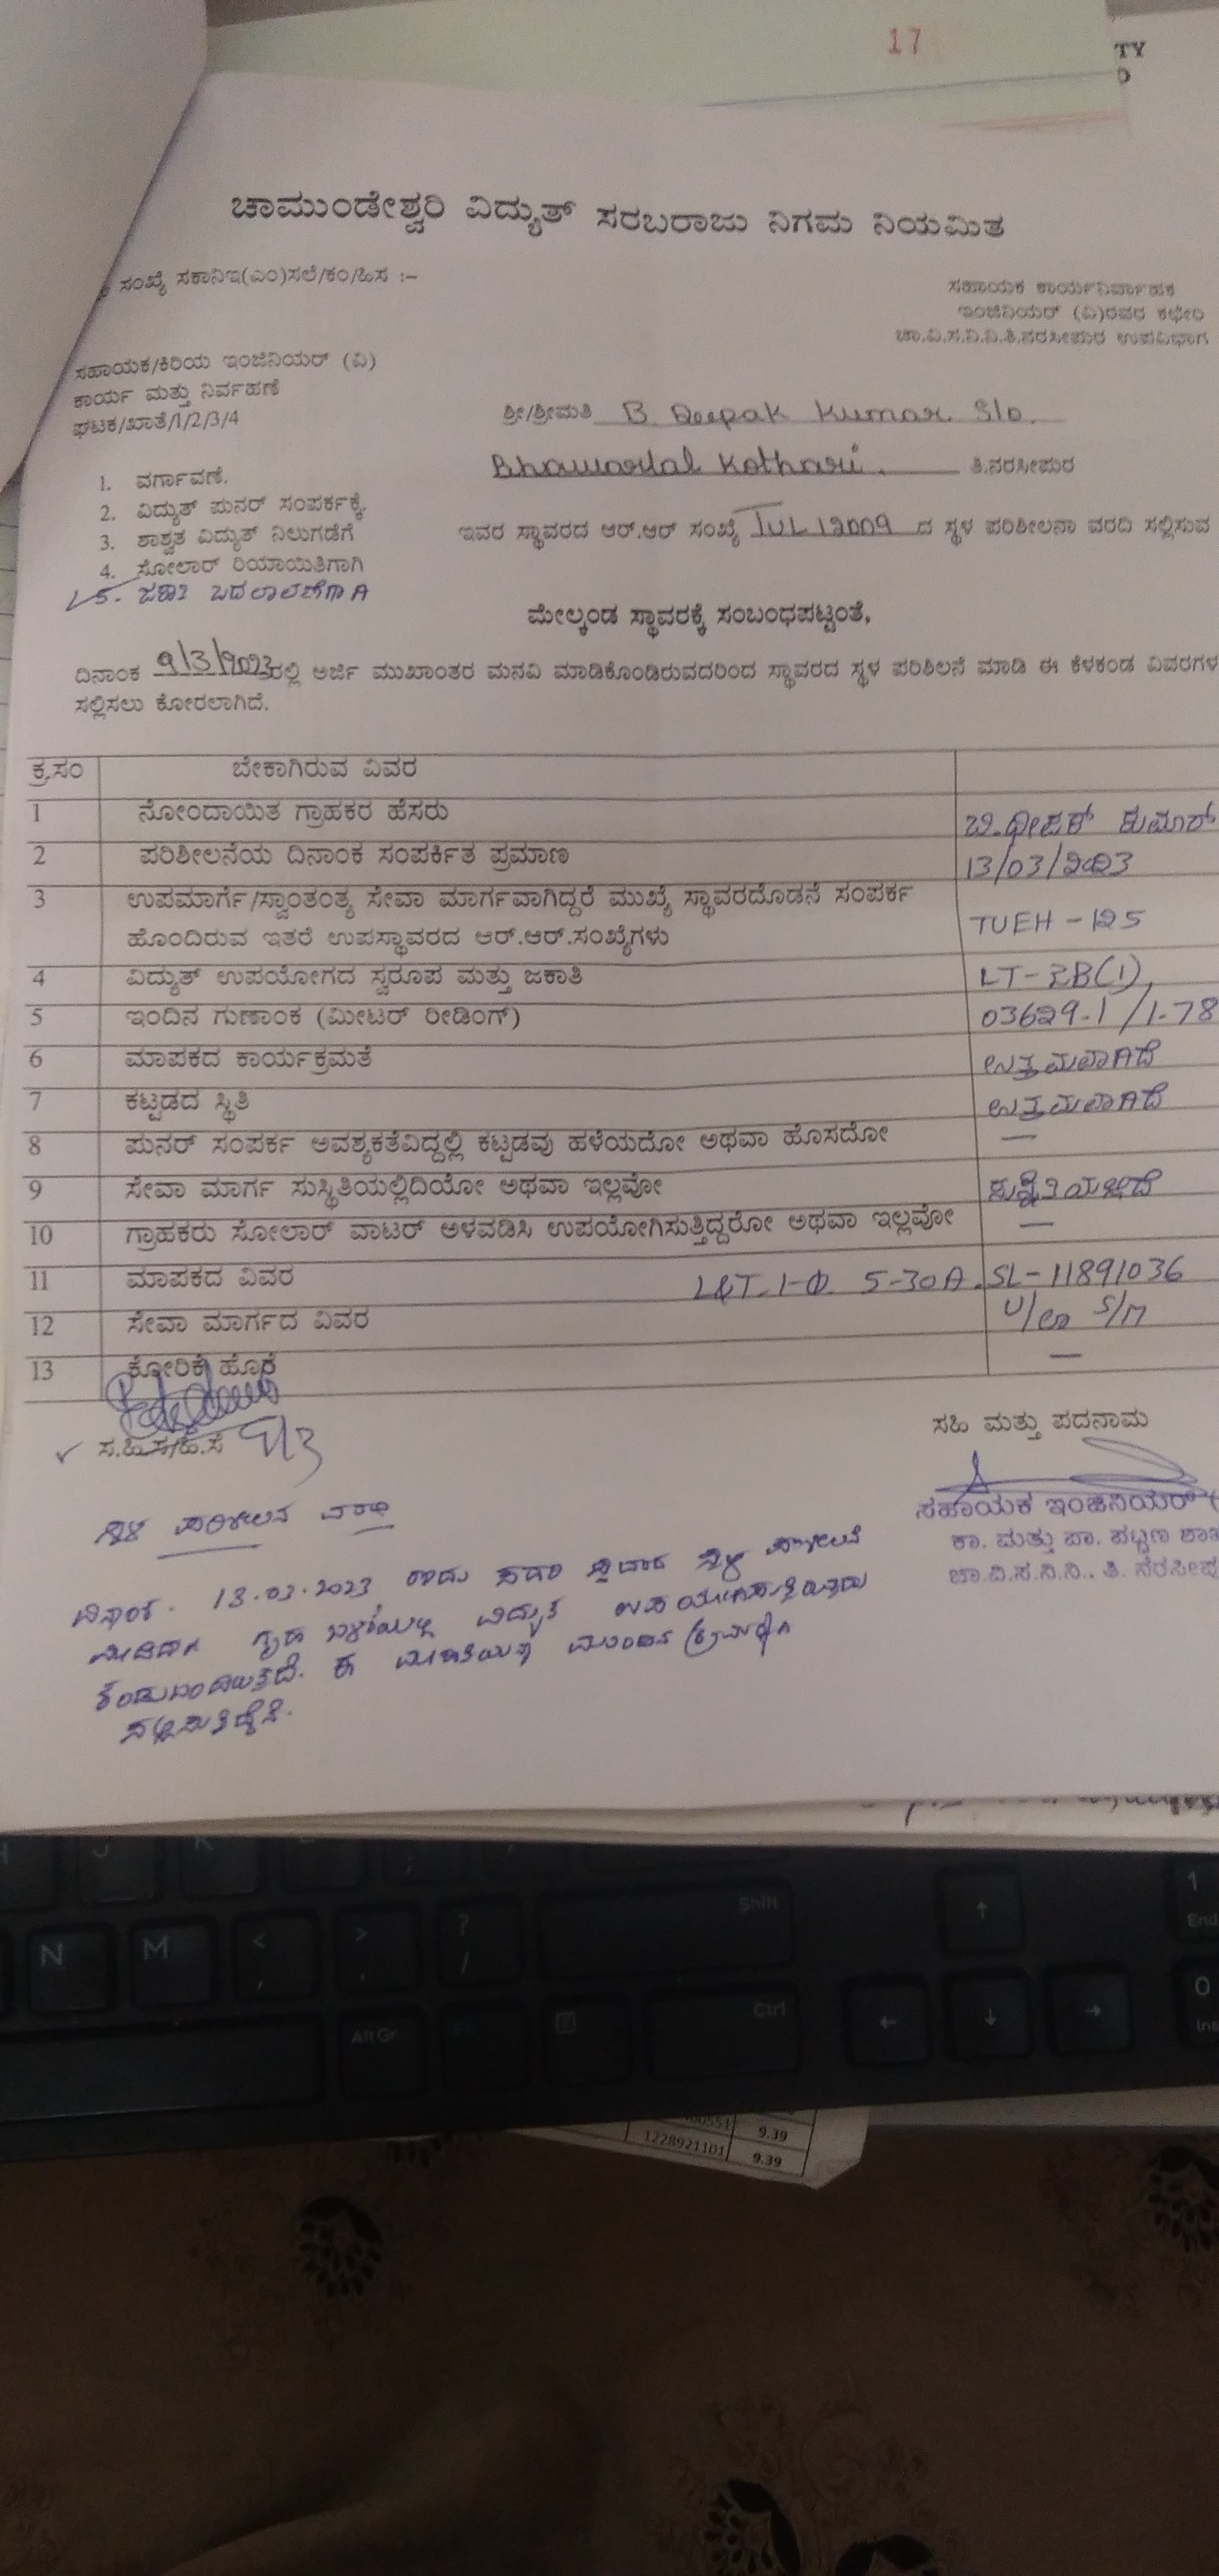 17
TY
D
ಚಾಮುಂಡೇಶ್ವರಿ ವಿದ್ಯುತ್ ಸರಬರಾಜು ನಿಗಮ ನಿಯಮಿತ
ಸಂಖ್ಯೆ ಸಕಾನಿಇ(ಎಂ)ಸಲೆ/ಕಂ/ಹಿಸ :–
ಸಹಾಯಕ ಕಾರ್ಯನಿರ್ವಾಹಕ
ಇಂಜಿನಿಯರ್ (ವಿ)ರವರ ಕಛೇರಿ
ಚಾ.ವಿ.ಸ.ನಿ.ನಿ.ತಿ.ನರಸೀಪುರ ಉಪವಿಭಾಗ
ಸಹಾಯಕ/ಕಿರಿಯ ಇಂಜಿನಿಯರ್ (ವಿ)
ಕಾರ್ಯ ಮತ್ತು ನಿರ್ವಹಣೆ
ಘಟಕ/ಖಾತೆ/1/2/3/4
ಶ್ರೀ/ಶ್ರೀಮತಿ B. Deepak Kumar S/o.
Bhawarlal Kothari. ತಿ.ನರಸೀಪುರ
1. ವರ್ಗಾವಣೆ.
2. ವಿದ್ಯುತ್ ಪುನರ್ ಸಂಪರ್ಕಕ್ಕೆ.
3. ಶಾಶ್ವತ ವಿದ್ಯುತ್ ನಿಲುಗಡೆಗೆ
4. ಸೋಲಾರ್ ರಿಯಾಯಿತಿಗಾಗಿ
5. ಬದಲಾವಣೆಗಾಗಿ
ಇವರ ಸ್ಥಾವರದ ಆರ್.ಆರ್ ಸಂಖ್ಯೆ TUL12009 ದ ಸ್ಥಳ ಪರಿಶೀಲನಾ ವರದಿ ಸಲ್ಲಿಸುವ
ಮೇಲ್ಕಂಡ ಸ್ಥಾವರಕ್ಕೆ ಸಂಬಂಧಪಟ್ಟಂತೆ,
ದಿನಾಂಕ 9/3/2023ರಲ್ಲಿ ಅರ್ಜಿ ಮುಖಾಂತರ ಮನವಿ ಮಾಡಿಕೊಂಡಿರುವದರಿಂದ ಸ್ಥಾವರದ ಸ್ಥಳ ಪರಿಶಿಲನೆ ಮಾಡಿ ಈ ಕೆಳಕಂಡ ವಿವರಗಳ
ಸಲ್ಲಿಸಲು ಕೋರಲಾಗಿದೆ.
ಕ್ರ.ಸಂ ಬೇಕಾಗಿರುವ ವಿವರ
1 ನೋಂದಾಯಿತ ಗ್ರಾಹಕರ ಹೆಸರು ಬಿ.ಧೀಪಕ್ ಕುಮಾರ್
2 ಪರಿಶೀಲನೆಯ ದಿನಾಂಕ ಸಂಪರ್ಕಿತ ಪ್ರಮಾಣ 13/03/2023
3 ಉಪಮಾರ್ಗ/ಸ್ವಾಂತಂತ್ರ್ಯ ಸೇವಾ ಮಾರ್ಗವಾಗಿದ್ದರೆ ಮುಖ್ಯೆ ಸ್ಥಾವರದೊಡನೆ ಸಂಪರ್ಕ
ಹೊಂದಿರುವ ಇತರೆ ಉಪಸ್ಥಾವರದ ಆರ್.ಆರ್.ಸಂಖ್ಯೆಗಳು TUEH - 125
4 ವಿದ್ಯುತ್ ಉಪಯೋಗದ ಸ್ವರೂಪ ಮತ್ತು ಜಕಾತಿ LT-2B(1)
5 ಇಂದಿನ ಗುಣಾಂಕ (ಮೀಟರ್ ರೀಡಿಂಗ್) 03629.1 /1.78
6 ಮಾಪಕದ ಕಾರ್ಯಕ್ರಮತೆ ಉತ್ತಮವಾಗಿದೆ
7 ಕಟ್ಟಡದ ಸ್ಥಿತಿ ಉತ್ತಮವಾಗಿದೆ
8 ಪುನರ್ ಸಂಪರ್ಕ ಅವಶ್ಯಕತೆವಿದ್ದಲ್ಲಿ ಕಟ್ಟಡವು ಹಳೆಯದೋ ಅಥವಾ ಹೊಸದೋ —
9 ಸೇವಾ ಮಾರ್ಗ ಸುಸ್ಥಿತಿಯಲ್ಲಿದಿಯೋ ಅಥವಾ ಇಲ್ಲವೋ ಸುಸ್ಥಿತಿಯಲ್ಲಿದೆ
10 ಗ್ರಾಹಕರು ಸೋಲಾರ್ ವಾಟರ್ ಅಳವಡಿಸಿ ಉಪಯೋಗಿಸುತ್ತಿದ್ದರೋ ಅಥವಾ ಇಲ್ಲವೋ —
11 ಮಾಪಕದ ವಿವರ L&T. 1-Φ. 5-30A. SL-11891036
12 ಸೇವಾ ಮಾರ್ಗದ ವಿವರ S/M
13 ಕೋರಿಕೆ ಹೊರೆ —
ಸ.ಹಿ.ಸ/ಹಿ.ಸ 9/3
ಸಹಿ ಮತ್ತು ಪದನಾಮ
ಸಹಾಯಕ ಇಂಜಿನಿಯರ್
ಕಾ. ಮತ್ತು ಪಾ. ಪಟ್ಟಣ ಶಾಖ
ಚಾ.ವಿ.ಸ.ನಿ.ನಿ., ತಿ. ನರಸೀಪು
ಸ್ಥಳ ಪರಿಶೀಲನ ವರದಿ
ದಿನಾಂಕ. 13.03.2023 ರಂದು ಸದರಿ ಸ್ಥಾವರ ಸ್ಥಳ ಪರಿಶೀಲನೆ
ಮಾಡಿದಾಗ ಗೃಹ ಬಳಕೆಯಲ್ಲಿ ವಿದ್ಯುತ್ ಉಪಯೋಗಿಸುತ್ತಿರುವುದು
ಕಂಡುಬಂದಿರುತ್ತದೆ. ಈ ಮಾಹಿತಿಯನ್ನು ಮುಂದಿನ ಕ್ರಮಕ್ಕಾಗಿ
ಸಲ್ಲಿಸುತ್ತಿದ್ದೇನೆ.
J K L
; :
Shift
↑
1
End
N M < , > . ? /
AltGr
Ctrl
← ↓ →
0
Ins
9.39
1228921101 9.39